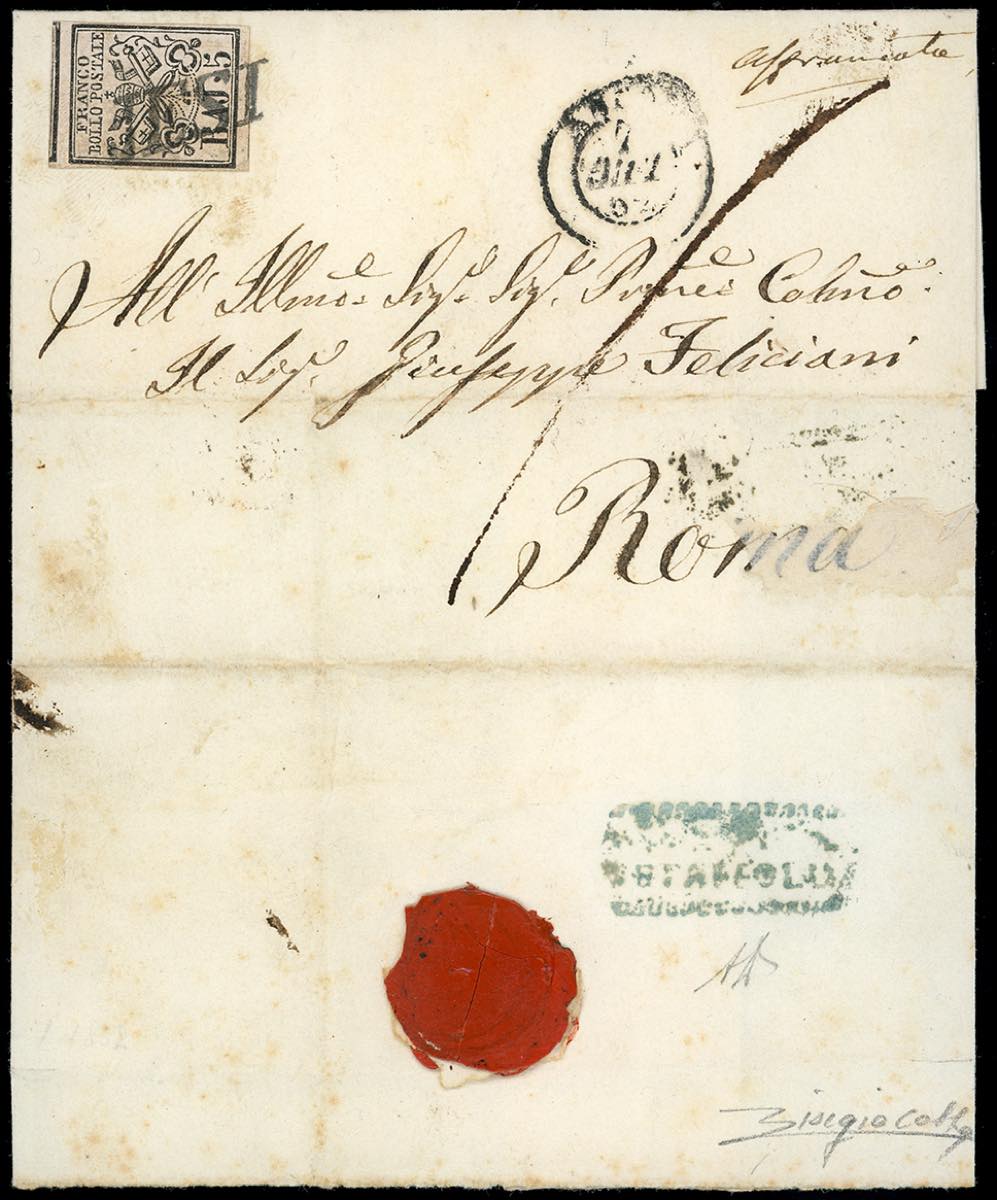 FRANCO
BOLLO POSTALE
BAJ. 5
affrancata
7
SI
All' Illmo. Sig. Sig. Colmo.
Il Sig. Giuseppe Feliciani
Roma
STAFFOLO
Giorgio Colla